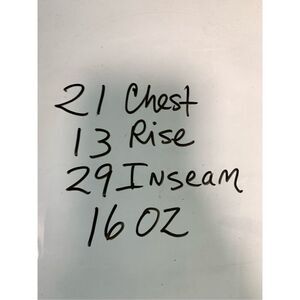 21 Chest
13 Rise
29 Inseam
16 OZ